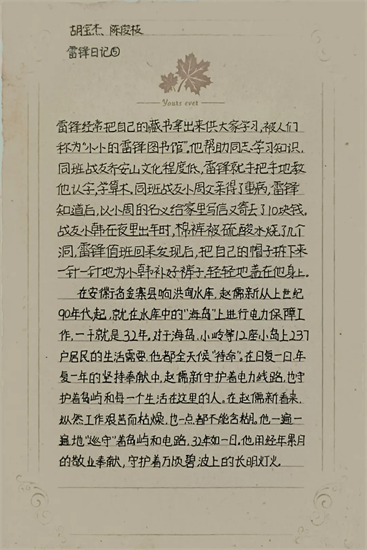 胡宝杰、陈俊枝
雷锋日记④
Yours ever
雷锋经常把自己的藏书拿出来供大家学习,被人们
称为“小小的雷锋图书馆”。他帮助同志学习知识,
同班战友乔安山文化程度低,雷锋就手把手地教
他认字,学算术,同班战友小周父亲得了重病,雷锋
知道后,以小周的名义给家里写信又寄去了10块钱。
战友小韩在夜里出车时,棉裤被硫酸水烧了几个
洞,雷锋值班回来发现后,把自己的帽子拆下来
一针一针地为小韩补好裤子,轻轻地盖在他身上。
在安徽省金寨县响洪甸水库,赵儒新从上世纪
90年代起,就在水库中的“海岛”上进行电力保障工
作,一干就是32年。对于海岛、小岭等12座小岛上237
户居民的生活需要,他都全天候“待命”。在日复一日、年
复一年的坚持奉献中,赵儒新守护着电力线路,也守
护着岛屿和每一个生活在这里的人。在赵儒新看来,
纵然工作艰苦而枯燥,也一点都不能含糊。他一遍一
遍地“巡守”着岛屿和电路,32年如一日,他用经年累月
的敬业奉献,守护着万顷碧波上的长明灯火